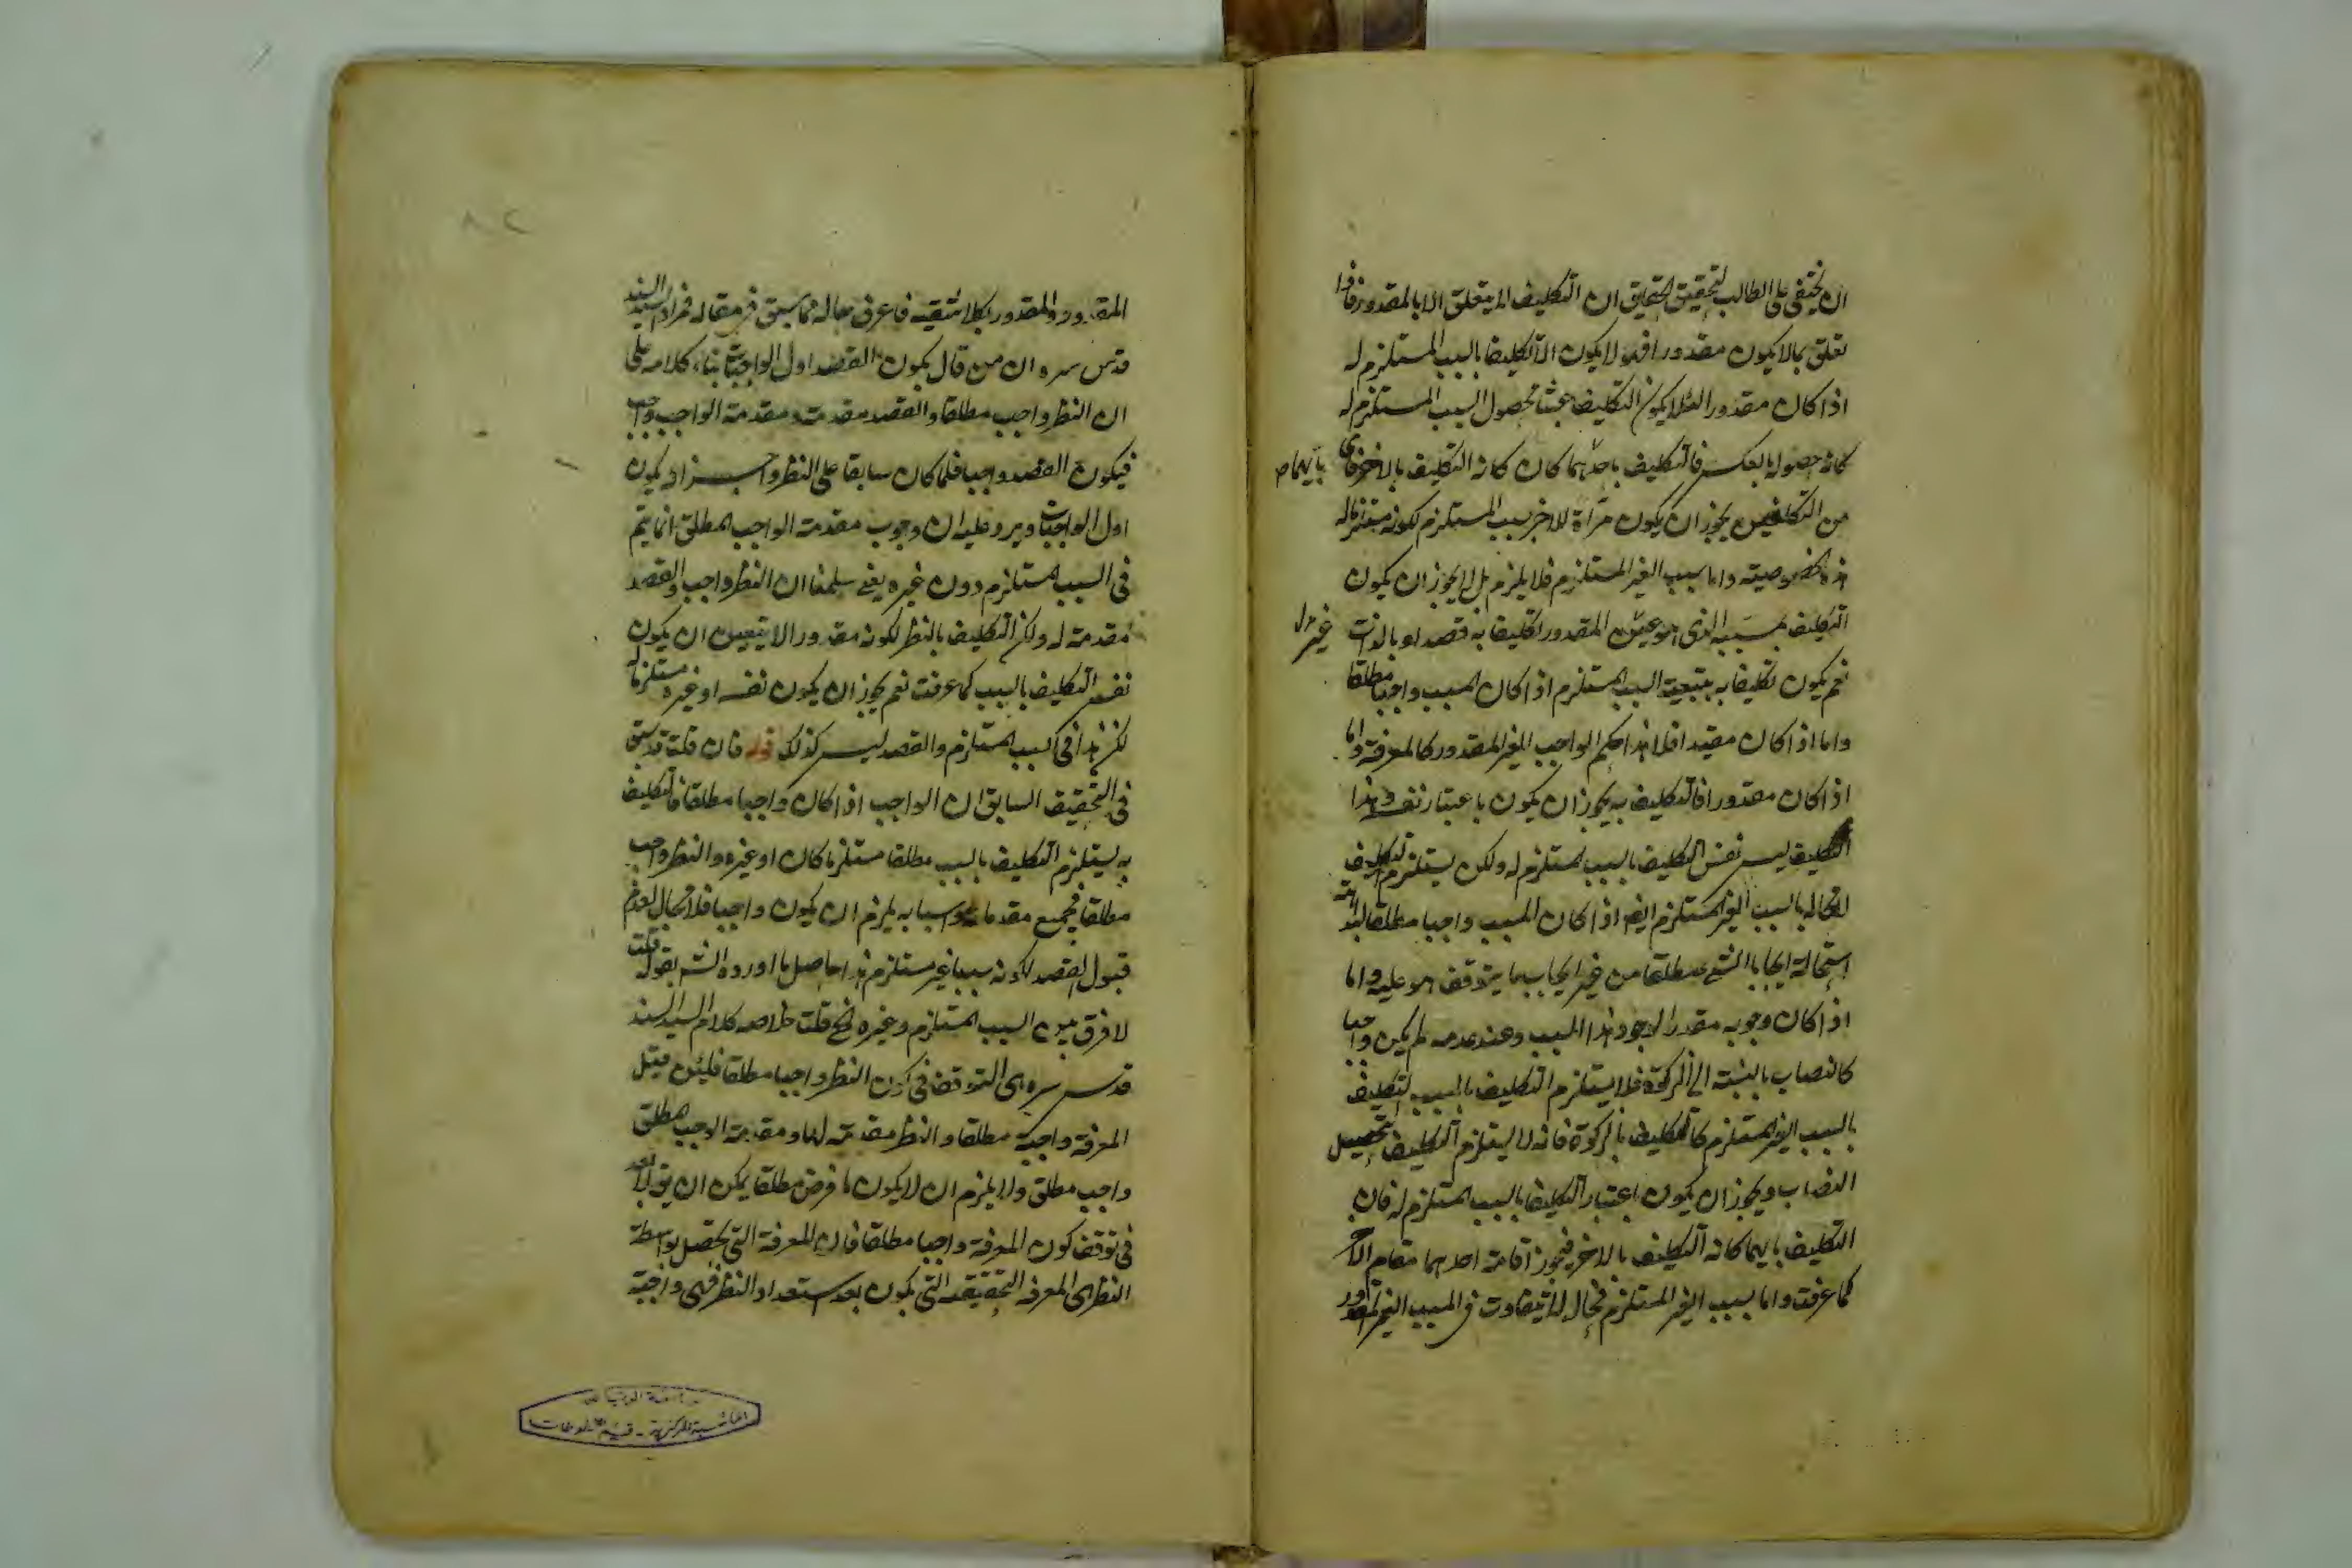 ان يختفى على الطالب لتحقيق الحقايق ان التكليف لا يتعلق الا بالمقدور فاذا
تعلق بما لا يكون مقدورا فهو لا يكون الا تكليفا بالسبب المستلزم له
اذا كان مقدورا لئلا يكون التكليف عبثا فحصول السبب المستلزم له
كانه حصوله بالعكس فالتكليف باحدهما كان كانه التكليف بالاخر فاى
بايهما
من التكليفين يجوز ان يكون مرآة للاخر بسبب المستلزم لكونه مستلزما له
خصوصيته واما سبب الغير المستلزم فلا يلزم بل لا يجوز ان يكون
التكليف بمسببه الذى هو المقدور تكليفا به قصدا وبالذات
غير
نعم يكون تكليفا به بتبعية السبب المستلزم اذا كان المسبب واجبا مطلقا
واما اذا كان مقيدا فلا هذا حكم الواجب الغير المقدور كالمعرفة واما
اذا كان مقدورا فالتكليف به يجوز ان يكون باعتبار نفسه وهذا
التكليف ليس نفس التكليف بالسبب المستلزم له ولكن يستلزم التكليف
لا محالة بالسبب الغير المستلزم ايضا اذا كان المسبب واجبا مطلقا البتة
استحالة ايجاب الشئ مطلقا من غير ايجاب ما يتوقف هو عليه واما
اذا كان وجوبه مقدرا لوجود هذا المسبب وعند عدمه لم يكن واجبا
كالنصاب بالنسبة الى الزكوة فلا يستلزم التكليف بالمسبب التكليف
بالسبب الغير المستلزم كالتكليف بالزكوة فانه لا يستلزم التكليف بتحصيل
النصاب ويجوز ان يكون باعتبار التكليف بالسبب المستلزم له فان
التكليف بايهما كانه التكليف بالاخر فيجوز اقامة احدهما مقام الاخر
كما عرفت واما سبب الغير المستلزم فحاله لا يتفاوت فى المسبب الغير المقدور
المقدور والمقدور بكلا شقيه فاعرف حاله مما سبق فى مقاله فمراد السيد السند
قدس سره ان من قال بكون القصد اول الواجبات بناء كلامه على
ان النظر واجب مطلقا والقصد مقدمته ومقدمة الواجب واجب
فيكون القصد واجبا فلما كان سابقا على النظر وجب ان يكون
اول الواجبات ويرد عليه ان وجوب مقدمة الواجب المطلق انما يتم
فى السبب المستلزم دون غيره يعنى سلمنا ان النظر واجب والقصد
مقدمة له ولكن التكليف بالنظر لكونه مقدورا لا يتعين ان يكون
نفس التكليف بالسبب كما عرفت نعم يجوز ان يكون نفسه او غيره مستلزما له
لكن هذا فى السبب المستلزم والقصد ليس كذلك قوله فان قلت قد سبق
فى التحقيق السابق ان الواجب اذا كان واجبا مطلقا فالتكليف
به يستلزم التكليف بالسبب مطلقا مستلزما كان او غيره والنظر واجب
مطلقا فجميع مقدماته واسبابه يلزم ان يكون واجبا فلا مجال لعدم
قبول القصد لكونه سببا غير مستلزم هذا حاصل ما اورده الشه بقوله قلت
لا فرق بين السبب المستلزم وغيره فح قلت خلاصه كلام السيد السند
قدس سره هى التوقف فى كون النظر واجبا مطلقا فلئن قيل
المعرفة واجبة مطلقا والنظر مقدمة لها ومقدمة الواجب المطلق
واجب مطلق ولا يلزم ان لا يكون ما فرض مطلقا يمكن ان يق
فى توقف كون المعرفة واجبا مطلقا فان المعرفة التى تحصل بواسطة
النظر هى المعرفة التحقيقية التى تكون بعد استعداد النظر فهى واجبة